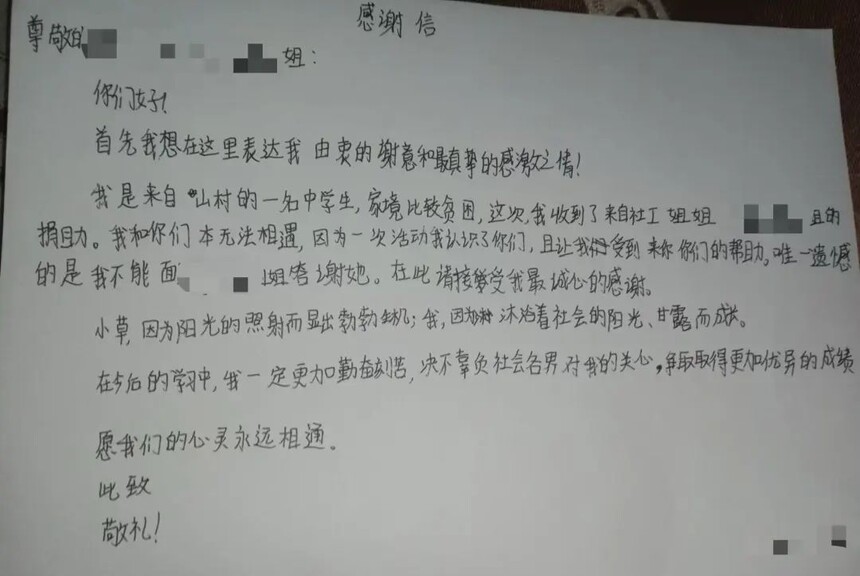 感谢信
尊敬的 姐：
你们好！
首先我想在这里表达我由衷的谢意和最真挚的感激之情！
我是来自山村的一名中学生，家境比较贫困，这次，我收到了来自社工姐姐 姐的
捐助。我和你们本无法相遇，因为一次活动我认识了你们，且让我受到来你你们的帮助。唯一遗憾
的是我不能面 姐答谢她。在此请接受我最诚心的感谢。
小草，因为阳光的照射而显出勃勃生机；我，因为沐浴着社会的阳光、甘露而成长。
在今后的学习中，我一定更加勤奋刻苦，决不辜负社会各界对我的关心，争取取得更加优异的成绩
愿我们的心灵永远相通。
此致
敬礼！